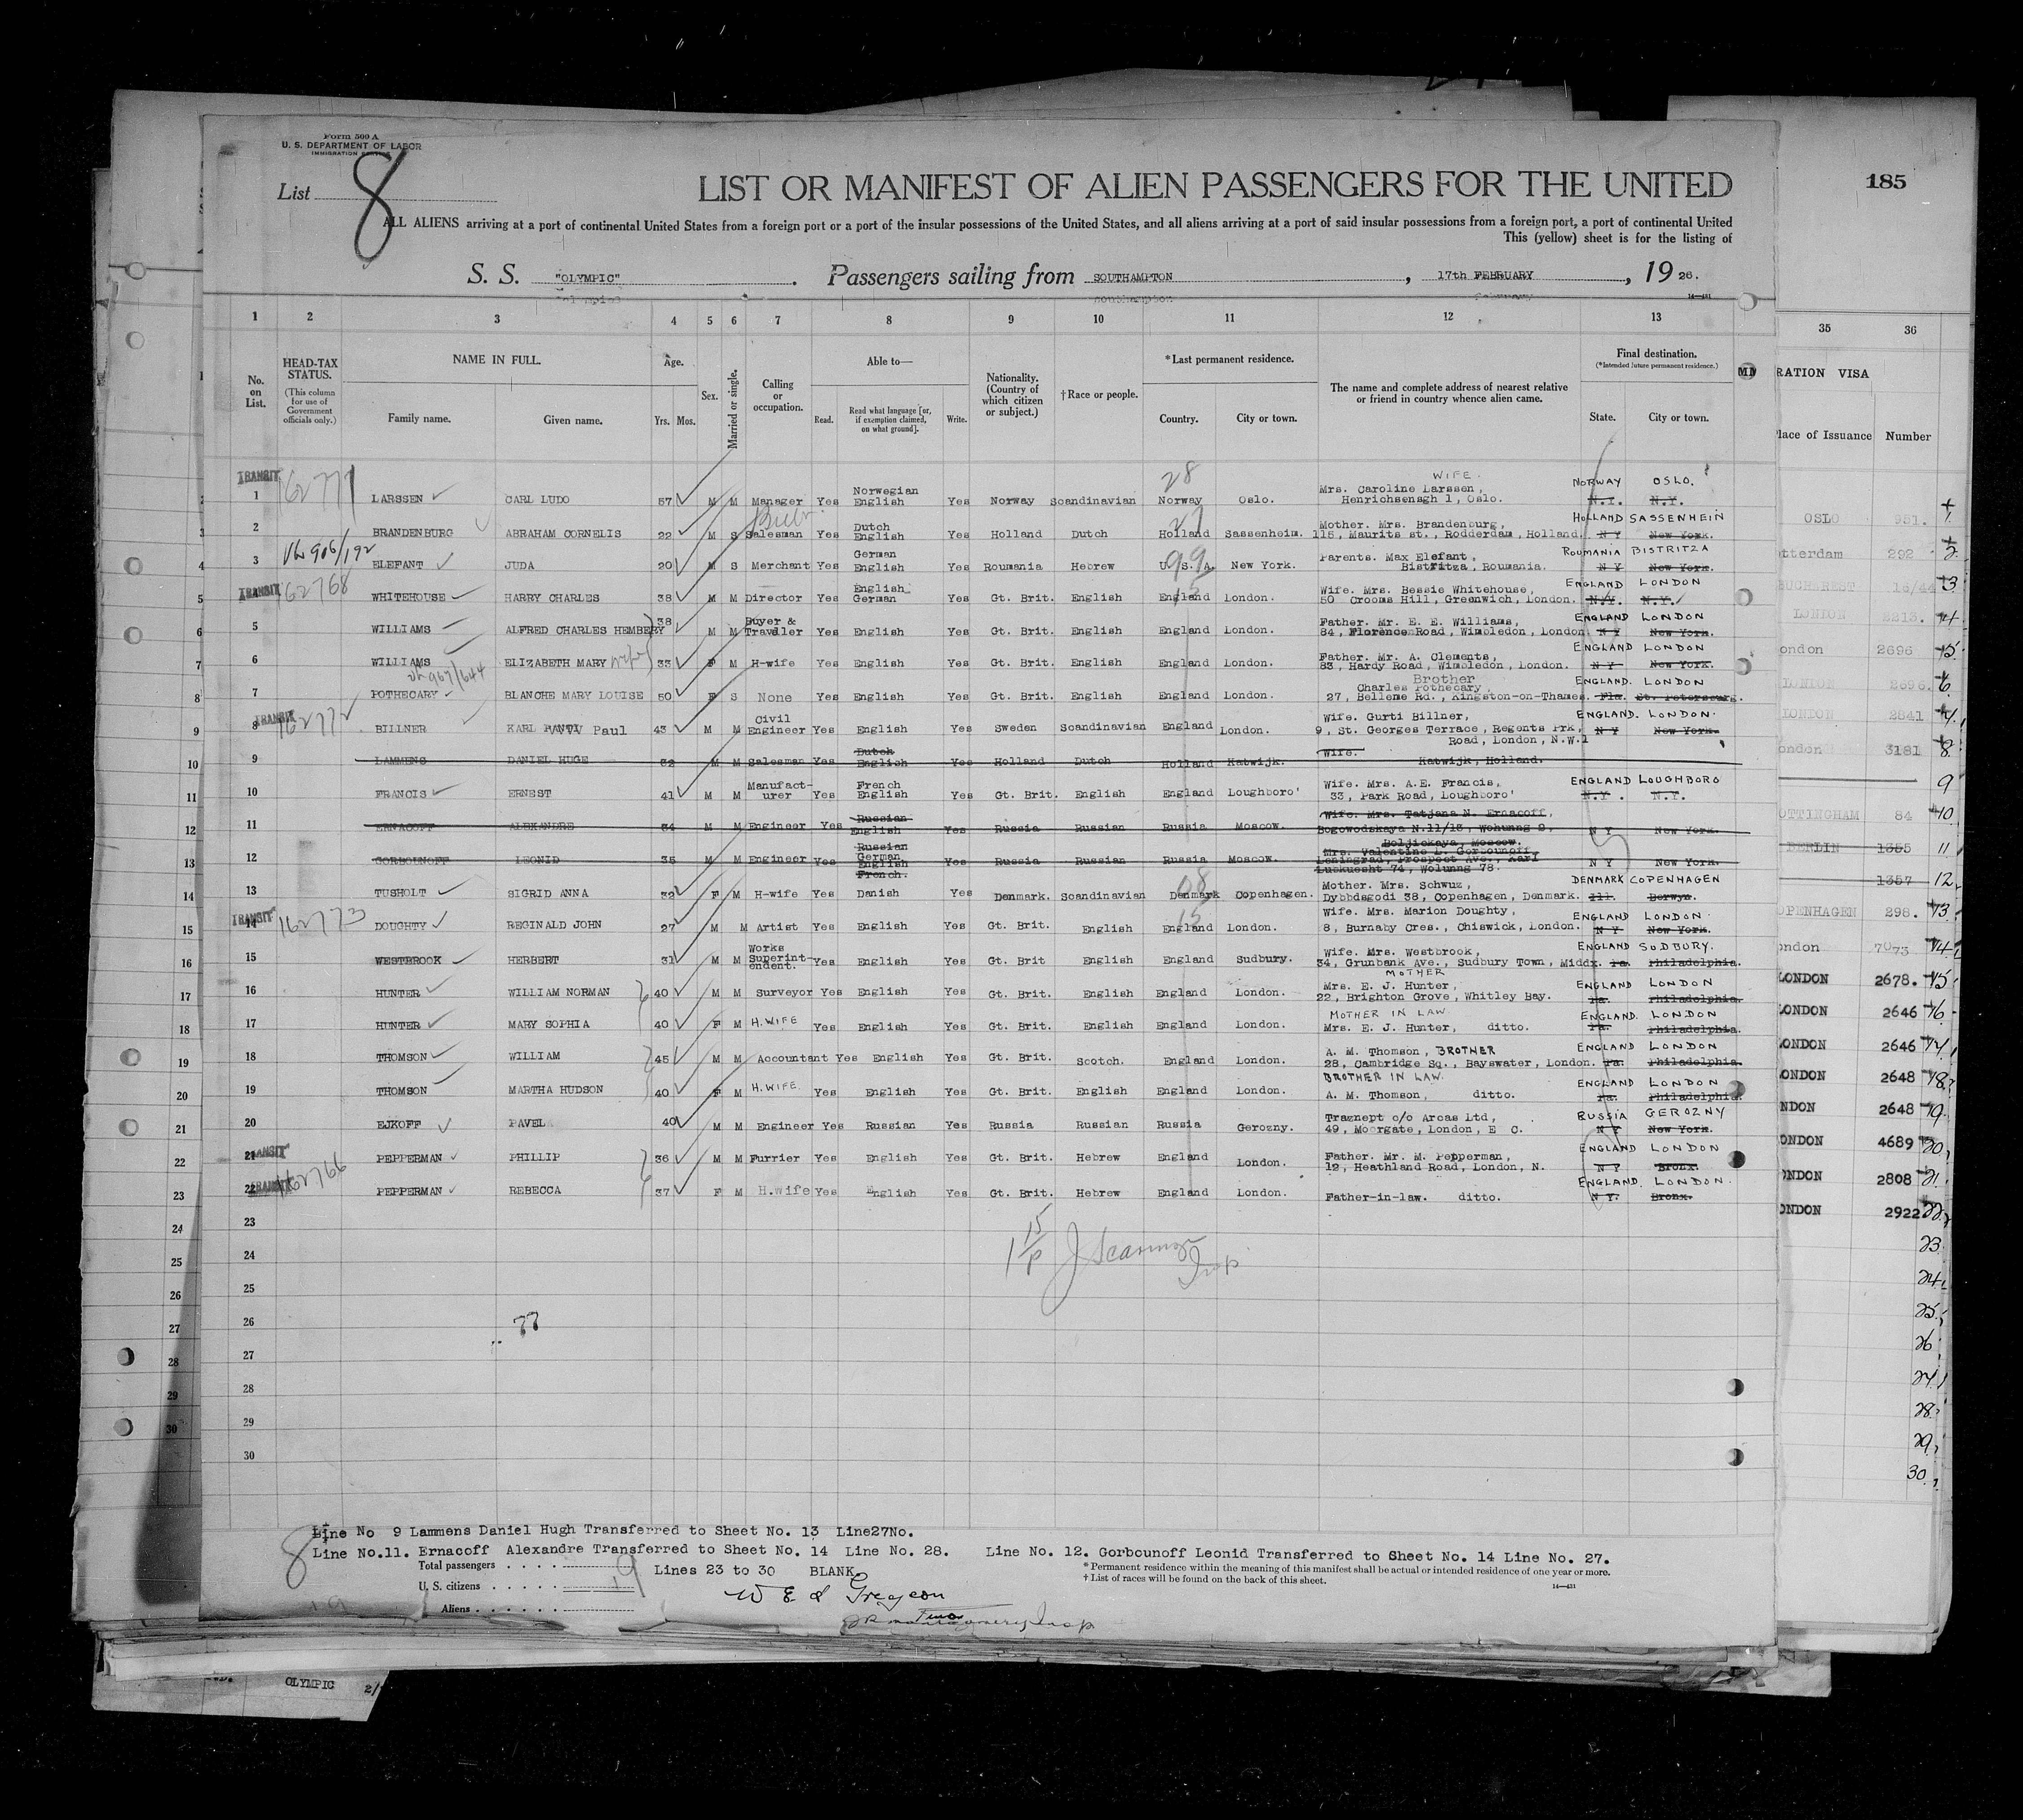 Form 500 A
U. S. DEPARTMENT OF LABOR
IMMIGRATION SERVICE
List 8
LIST OR MANIFEST OF ALIEN PASSENGERS FOR THE UNITED
185
ALL ALIENS arriving at a port of continental United States from a foreign port or a port of the insular possessions of the United States, and all aliens arriving at a port of said insular possessions from a foreign port, a port of continental United
This (yellow) sheet is for the listing of
S. S. "OLYMPIC". Passengers sailing from SOUTHAMPTON, 17th FEBRUARY, 1926.
1 2 3 4 5 6 7 8 9 10 11 12 13 35 36
No. on List. HEAD-TAX STATUS. (This column for use of Government officials only.) NAME IN FULL. Family name. Given name. Age. Yrs. Mos. Sex. Married or single. Calling or occupation. Able to— Read. Read what language [or, if exemption claimed, on what ground]. Write. Nationality. (Country of which citizen or subject.) †Race or people. *Last permanent residence. Country. City or town. The name and complete address of nearest relative or friend in country whence alien came. Final destination. (*Intended future permanent residence.) State. City or town. RATION VISA Place of Issuance Number
TRANSIT 162771 1 LARSSEN CARL LUDO 57 M M Manager Yes Norwegian English Yes Norway Scandinavian Norway Oslo. WIFE Mrs. Caroline Larssen, Henrichsensgh 1, Oslo. NORWAY OSLO. N.Y. N.Y. OSLO 951. 1
2 BRANDENBURG ABRAHAM CORNELIS 22 M S Salesman Yes Dutch English Yes Holland Dutch Holland Sassenheim. Mother. Mrs. Brandenburg, 115, Maurits st., Rodderdam, Holland. HOLLAND SASSENHEIN N Y New York. otterdam 292 2
3 ELEFANT JUDA 20 M S Merchant Yes German English Yes Roumania Hebrew U.S.A. New York. Parents. Max Elefant, Bistritza, Roumania. ROUMANIA BISTRITZA N Y New York. BUCHAREST 16/44 3
TRANSIT 162768 WHITEHOUSE HARRY CHARLES 38 M M Director Yes English German Yes Gt. Brit. English England London. Wife. Mrs. Bessie Whitehouse, 50 Crooms Hill, Greenwich, London. ENGLAND LONDON N.Y. N.Y. LONDON 2213. 4
5 WILLIAMS ALFRED CHARLES HEMBERY 38 M M Buyer & Traveller Yes English Yes Gt. Brit. English England London. Father. Mr. E. E. Williams, 84, Florence Road, Wimbledon, London. ENGLAND LONDON N Y New York. ondon 2696 5
6 WILLIAMS ELIZABETH MARY wife 33 F M H-wife Yes English Yes Gt. Brit. English England London. Father. Mr. A. Clements, 83, Hardy Road, Wimbledon, London. ENGLAND LONDON N Y New York. LONDON 2696. 6
7 POTHECARY BLANCHE MARY LOUISE 50 F S None Yes English Yes Gt. Brit. English England London. Brother Charles Pothecary, 27, Bellene Rd., Kingston-on-Thames. ENGLAND. LONDON Fla. St. Petersburg. LONDON 2841 7
TRANSIT 162772 8 BILLNER KARL Paul 43 M M Civil Engineer Yes English Yes Sweden Scandinavian England London. Wife. Gurti Billner, 9, St. Georges Terrace, Regents Prk, Road, London, N.W.1 ENGLAND. LONDON. N Y New York. ondon 3181 8
9 LAMMENS DANIEL HUGE 32 M M Salesman Yes Dutch English Yes Holland Dutch Holland Katwijk. Wife. Katwijk, Holland. 9
10 FRANCIS ERNEST 41 M M Manufact-urer Yes French English Yes Gt. Brit. English England Loughboro' Wife. Mrs. A.E. Francis, 33, Park Road, Loughboro' ENGLAND LOUGHBORO N.Y. N.Y. OTTINGHAM 84 10
11 ERNACOFF ALEXANDRE 34 M M Engineer Yes Russian English Yes Russia Russian Russia Moscow. Wife. Mrs. Tatjana N. Ernacoff, Bogowodskaya N.11/13, Wohunng 9, Boljickaya, Moscow. N Y New York. BERLIN 1355 11
12 GORBOUNOFF LEONID 35 M M Engineer Yes Russian German English French. Yes Russia Russian Russia Moscow. Mrs. Valentine L. Gorbounoff, Leningrad, Prospect Ave., Karl Luckuesht 74, Wolunng 78. N Y New York. 1357 12
13 TUSHOLT SIGRID ANNA 32 F M H-wife Yes Danish Yes Denmark. Scandinavian Denmark Copenhagen. Mother. Mrs. Schwuz, Dybbdsgodi 38, Copenhagen, Denmark. DENMARK COPENHAGEN Ill. Berwyn. OPENHAGEN 298. 13
TRANSIT 162773 14 DOUGHTY REGINALD JOHN 27 M M Artist Yes English Yes Gt. Brit. English England London. Wife. Mrs. Marion Doughty, 8, Burnaby Cres., Chiswick, London. ENGLAND LONDON. N Y New York. ondon 7073 14
15 WESTBROOK HERBERT 31 M M Works Superint-endent. Yes English Yes Gt. Brit English England Sudbury. Wife. Mrs. Westbrook, 34, Grunbank Ave., Sudbury Town, Middx. ENGLAND SUDBURY. Pa. Philadelphia. LONDON 2678. 15
16 HUNTER WILLIAM NORMAN 40 M M Surveyor Yes English Yes Gt. Brit. English England London. MOTHER Mrs. E. J. Hunter, 22, Brighton Grove, Whitley Bay. ENGLAND LONDON Pa. Philadelphia. LONDON 2646 16
17 HUNTER MARY SOPHIA 40 F M H.WIFE Yes English Yes Gt. Brit. English England London. MOTHER IN LAW. Mrs. E. J. Hunter, ditto. ENGLAND. LONDON Pa. Philadelphia. LONDON 2646 17
18 THOMSON WILLIAM 45 M M Accountant Yes English Yes Gt. Brit. Scotch. England London. A. M. Thomson, BROTHER 28, Cambridge Sq., Bayswater, London. ENGLAND LONDON Pa. Philadelphia. LONDON 2648 18
19 THOMSON MARTHA HUDSON 40 F M H.WIFE. Yes English Yes Gt. Brit. English England London. BROTHER IN LAW. A. M. Thomson, ditto. ENGLAND LONDON Pa. Philadelphia. NDON 2648 19
20 EJKOFF PAVEL 40 M M Engineer Yes Russian Yes Russia Russian Russia Gerozny. Traznept c/o Arcas Ltd, 49, Moorgate, London, E C. RUSSIA GEROZNY N Y New York. ONDON 4689 20
TRANSIT 21 PEPPERMAN PHILLIP 36 M M Furrier Yes English Yes Gt. Brit. Hebrew England London. Father. Mr. M. Pepperman, 12, Heathland Road, London, N. ENGLAND LONDON N Y Bronx. ONDON 2808 21
TRANSIT 162766 22 PEPPERMAN REBECCA 37 F M H.wife Yes English Yes Gt. Brit. Hebrew England London. Father-in-law. ditto. ENGLAND. LONDON. N Y. Bronx. ONDON 2922 22
23 23
24 24
25 25
26 77 26
27 27
28 28
29 29
30 30
Line No 9 Lammens Daniel Hugh Transferred to Sheet No. 13 Line27No.
8 Line No.11. Ernacoff Alexandre Transferred to Sheet No. 14 Line No. 28. Line No. 12. Gorbounoff Leonid Transferred to Sheet No. 14 Line No. 27.
Total passengers 19 Lines 23 to 30 BLANK.
* Permanent residence within the meaning of this manifest shall be actual or intended residence of one year or more.
U. S. citizens
† List of races will be found on the back of this sheet.
14—431
Aliens
OLYMPIC 2/